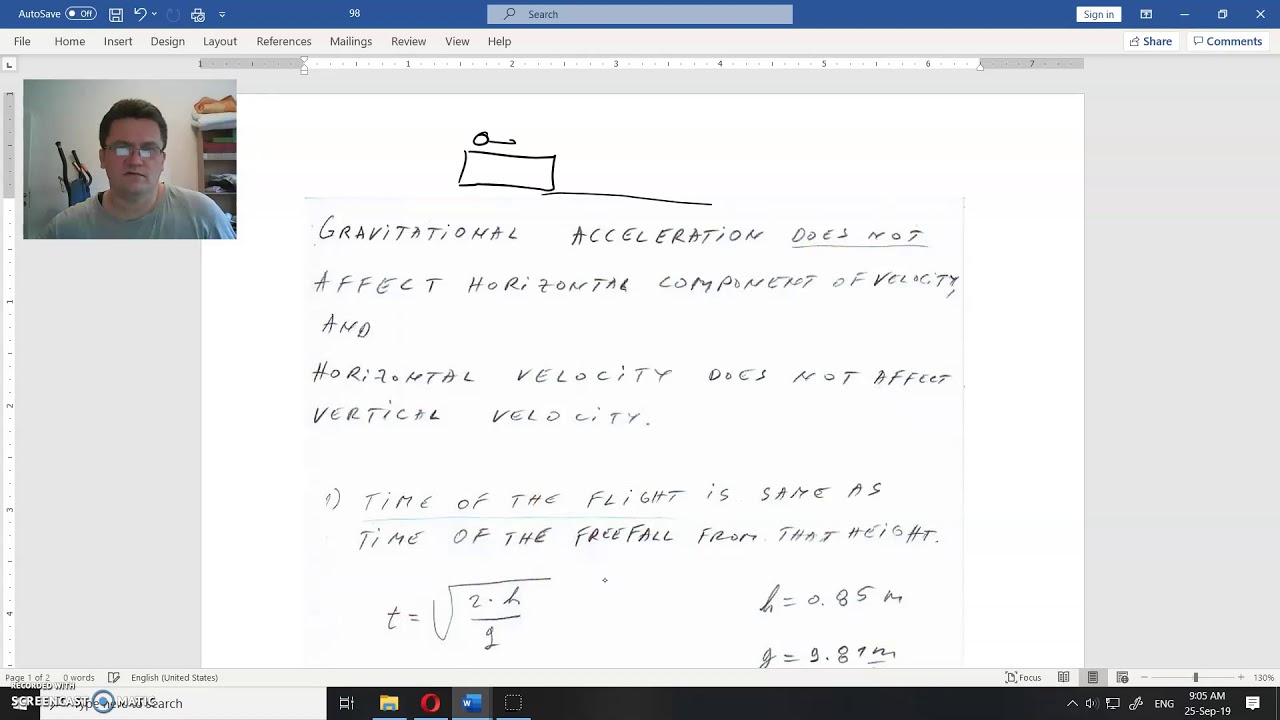 AutoSave Off
98
Search
Sign in
File Home Insert Design Layout References Mailings Review View Help
Share Comments
1 1 2 3 4 5 6 7
GRAVITATIONAL ACCELERATION DOES NOT
AFFECT HORIZONTAL COMPONENT OF VELOCITY,
AND
HORIZONTAL VELOCITY DOES NOT AFFECT
VERTICAL VELOCITY.
1) TIME OF THE FLIGHT IS SAME AS
TIME OF THE FREEFALL FROM THAT HEIGHT.
t = √(2·h/g)
h = 0.85 m
g = 9.81 m
1
2
3
4
Page 1 of 2 0 words English (United States)
Focus 130%
RECORDED WITH
SCREENCAST MATIC
here to search
ENG
9:05 AM
25-Sep-19